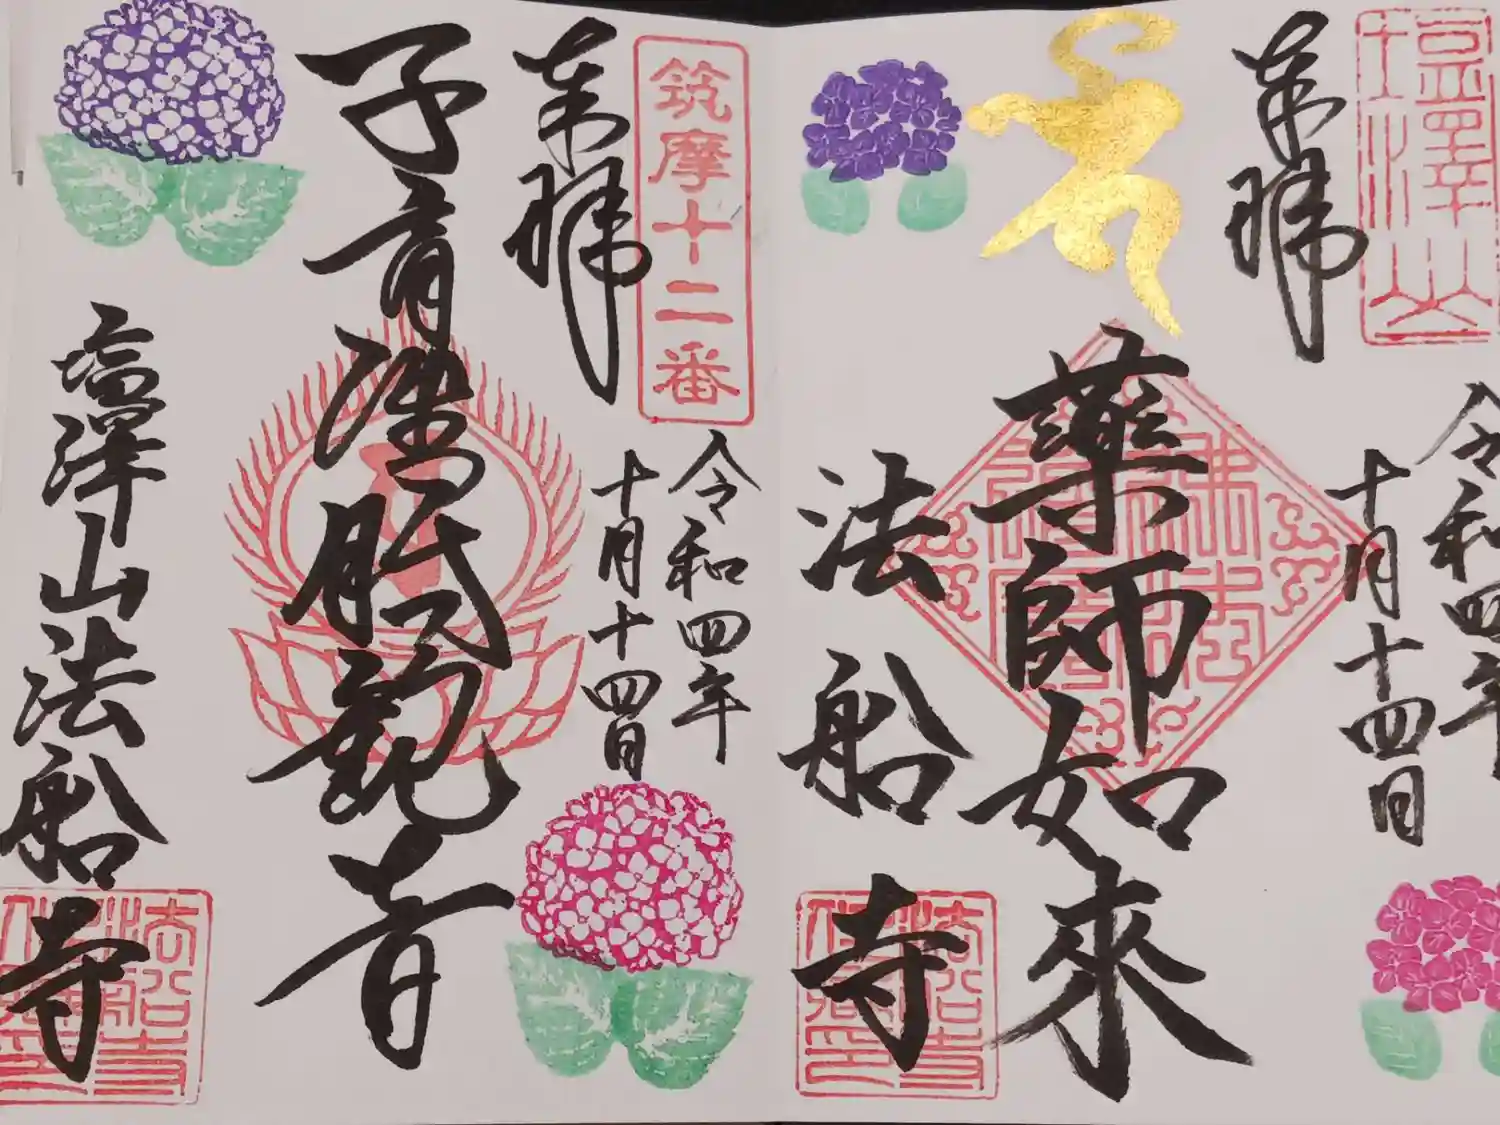 塩澤山
奉拝
令和四年
十月十四日
薬師如來
法船寺
筑摩十二番
奉拝
令和四年
十月十四日
子育
観音
塩澤山法船寺
法船寺